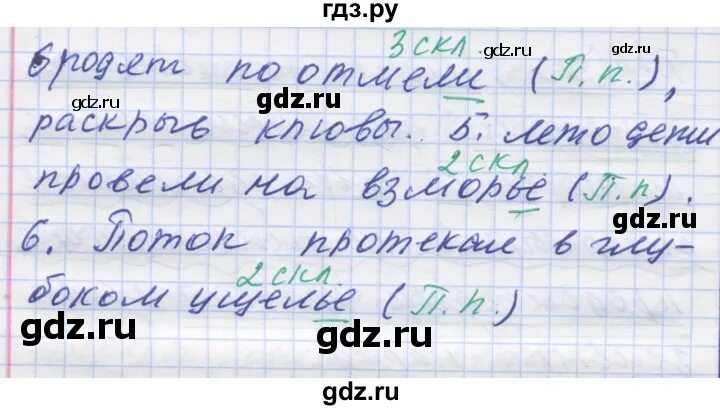 гдз.ру
3 скл.
бродят по отмели (П.п.),
gdz.ru gdz.ru gdz.ru
раскрыв клювы. 5. Лето дети
2 скл.
провели на взморье (П.п).
gdz.ru gdz.ru
6. Поток протекал в глу-
2 скл.
боком ущелье (П.п.)
gdz.ru gdz.ru
gdz.ru